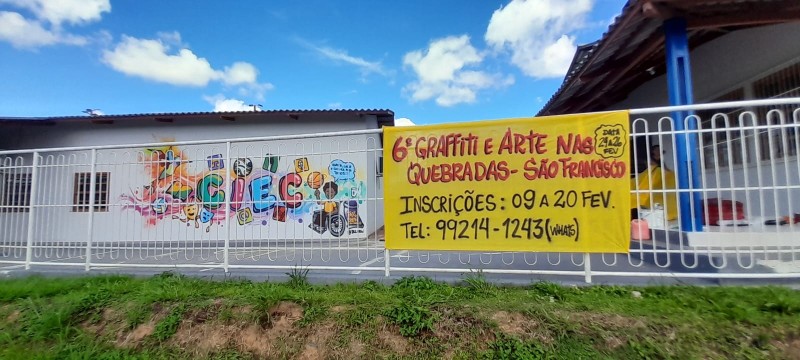 CIEC
6º GRAFFITI E ARTE NAS
QUEBRADAS - SÃO FRANCISCO
DATA
FEV
INSCRIÇÕES: 09 A 20 FEV.
TEL: 99214-1243 (WHATS)